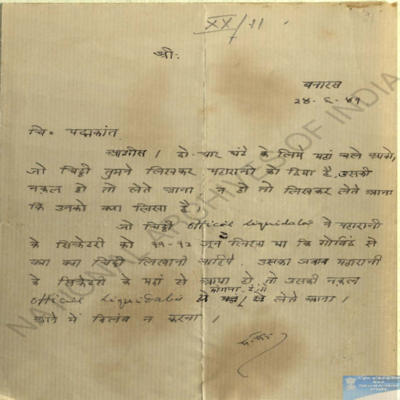 XX/11
श्रीः
बनारस
२४-६-४१
चि० पद्मकांत
आशीस। दो-चार घंटे के लिये यहां चले आओ,
जो चिट्ठी तुमने लिखकर महारानी को दिया है, उसकी
नकल हो तो लेते आना। न हो तो लिखकर लेते आना
कि उनको क्या लिखा है।
जो चिट्ठी official liquidator ने महारानी
के सिक्रेटरी को ११-१२ जून लिखा था कि गोविंद से
क्या क्या चिट्ठी लिखानी चाहिये। उसका जवाब महारानी
के सिक्रेटरी के यहां से आया हो तो उसकी नकल
official liquidator से लेते आना।
आने में विलंब न करना।
NATIONAL ARCHIVES OF INDIA